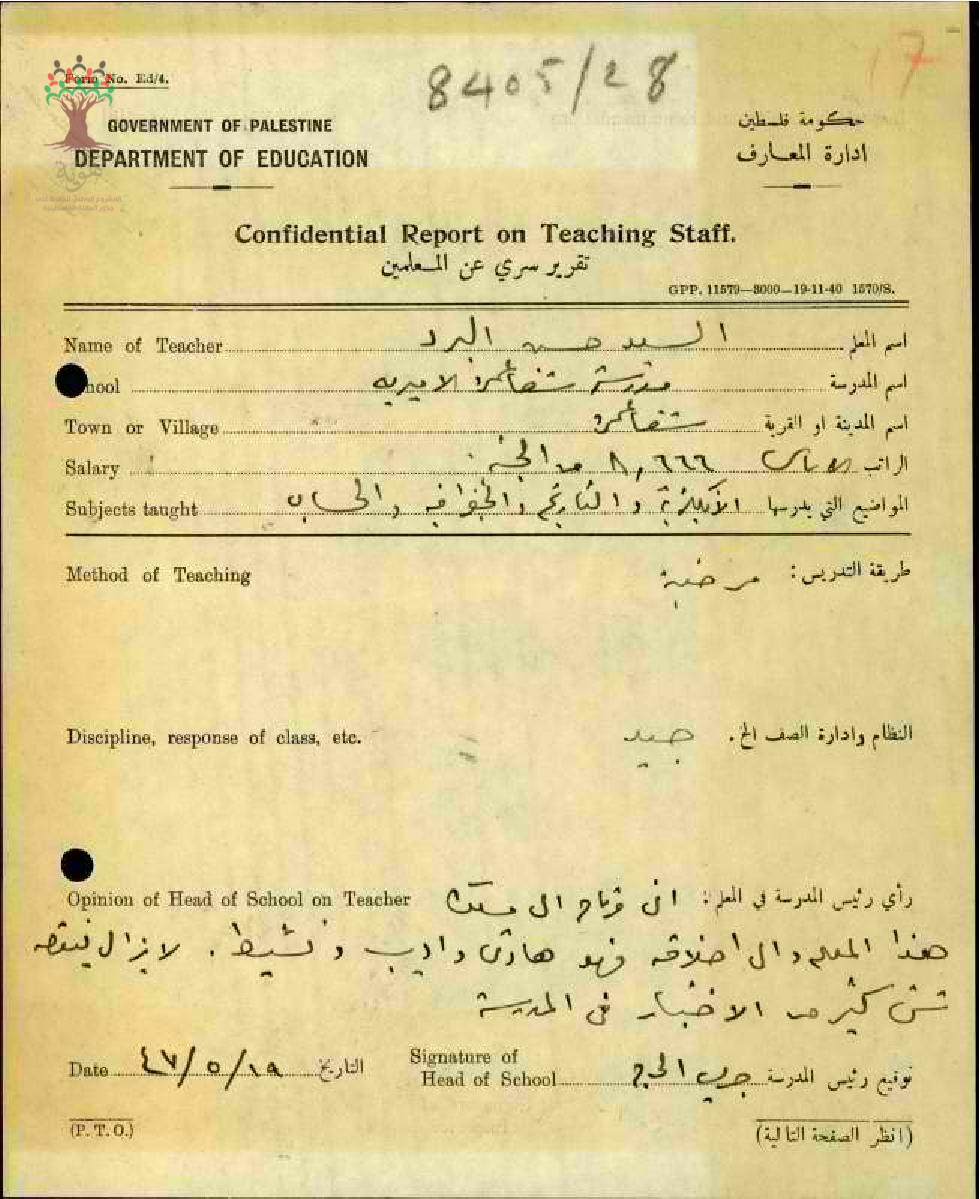 8405/28
17
Form No. Ed/4.
GOVERNMENT OF PALESTINE
حكومة فلسطين
DEPARTMENT OF EDUCATION
ادارة المعارف
هوية
Confidential Report on Teaching Staff.
تقرير سري عن المعلمين
GPP. 11579—3000—19-11-40 1570/S.
Name of Teacher السيد حسن البرد اسم المعلم
hool مدرسة شفاعمرو الاميرية اسم المدرسة
Town or Village شفاعمرو اسم المدينة او القرية
Salary الراتب الاساسي ٨,٦٦٦ من الجنيه
Subjects taught المواضيع التي يدرسها الانكليزية والتاريخ والجغرافيه والحساب
Method of Teaching طريقة التدريس: مرضية
Discipline, response of class, etc. النظام وادارة الصف الخ. جيد
Opinion of Head of School on Teacher رأي رئيس المدرسة في المعلم: اني مرتاح الى مسلك
هذا المعلم والى اخلاقه فهو هادئ واديب ونشيط. لا يزال ينقصه
كثير من الاختبار في المدرسة
Date ٤٧/٥/١٩ التاريخ
Signature of
Head of School توقيع رئيس المدرسة
(P. T. O.) (انظر الصفحة التالية)